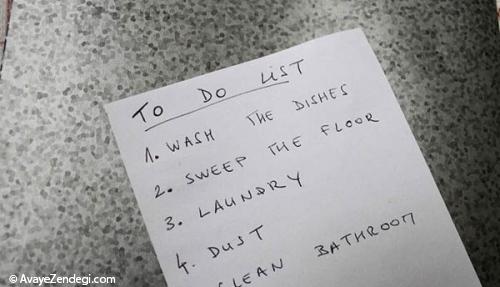 TO DO LIST
1. WASH THE DISHES
2. SWEEP THE FLOOR
3. LAUNDRY
4. DUST
CLEAN BATHROOM
© AvayeZendegi.com